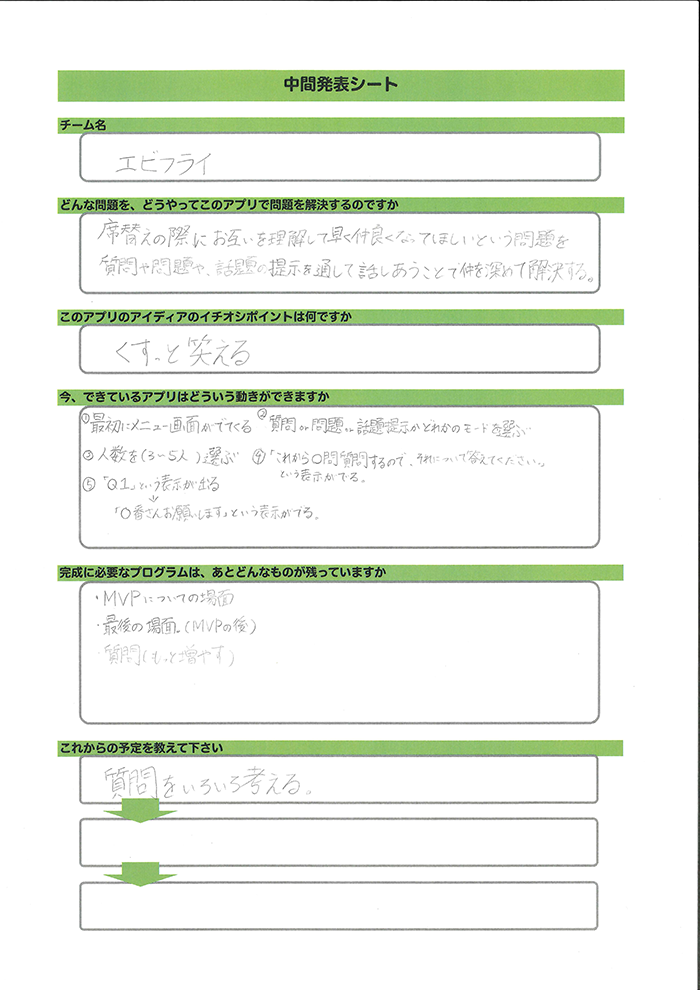 中間発表シート
チーム名
エビフライ
どんな問題を、どうやってこのアプリで問題を解決するのですか
席替えの際にお互いを理解して早く仲良くなってほしいという問題を
質問や問題や、話題の提示を通して話しあうことで仲を深めて解決する。
このアプリのアイディアのイチオシポイントは何ですか
くすっと笑える
今、できているアプリはどういう動きができますか
①最初にメニュー画面がでてくる ②質問or問題or話題提示かどれかのモードを選ぶ
③人数を(3〜5人)選ぶ ④「これから〇問質問するので、それについて答えてください。」
という表示がでる。
⑤「Q1」という表示が出る
↓
「〇番さんお願いします」という表示がでる。
完成に必要なプログラムは、あとどんなものが残っていますか
・MVPについての場面
・最後の場面。(MVPの後)
・質問(もっと増やす)
これからの予定を教えて下さい
質問をいろいろ考える。